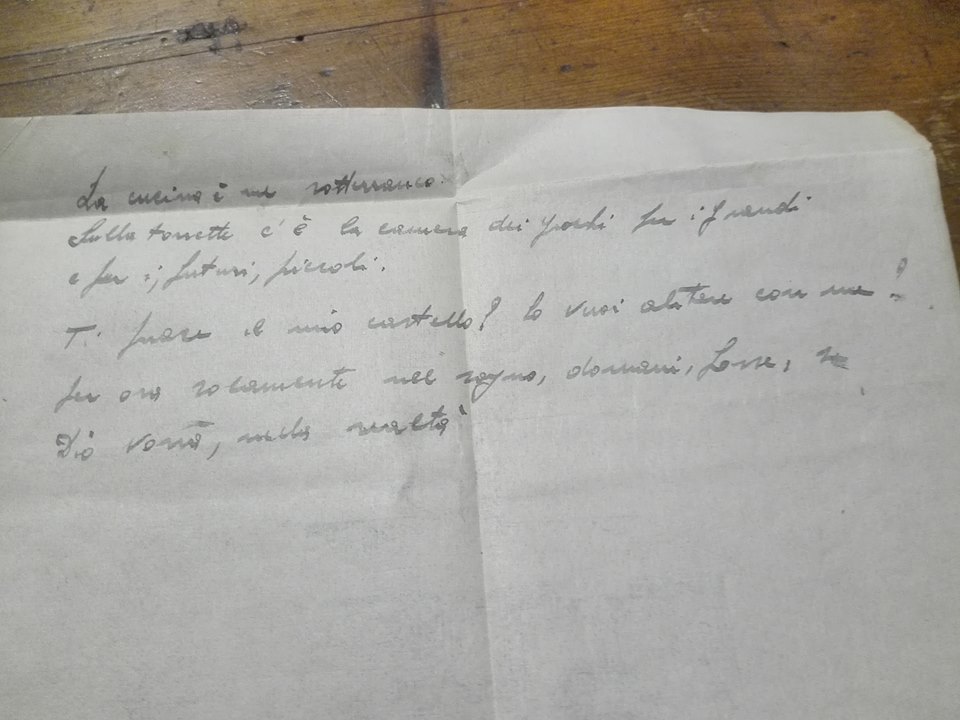 La cucina è nel sotterraneo.
Sulla torretta c'è la camera dei giochi per i grandi
e per i, futuri, piccoli.
Ti piace il mio castello? Lo vuoi abitare con me?
per ora solamente nel sogno, domani, forse, se
Dio vorrà, nella realtà